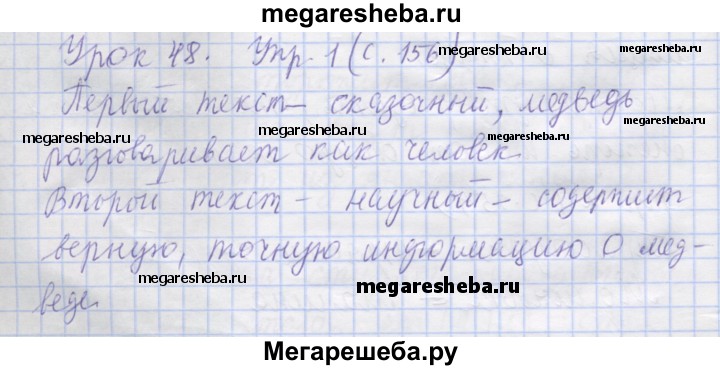 megaresheba.ru
Урок 48. Упр. 1 (с. 156)
Первый текст – сказочный, медведь
megaresheba.ru megaresheba.ru megaresheba.ru
разговаривает как человек.
Второй текст – научный – содержит
верную, точную информацию о мед-
megaresheba.ru megaresheba.ru
веде.
Мегарешеба.ру